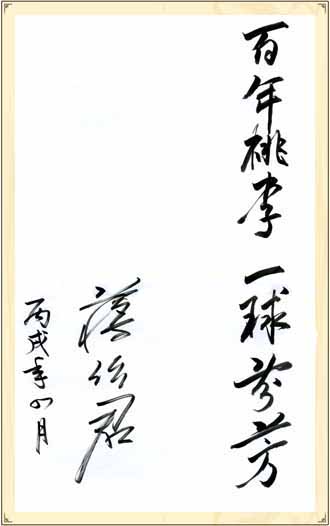 百年桃李 一球芬芳
丙戌年四月